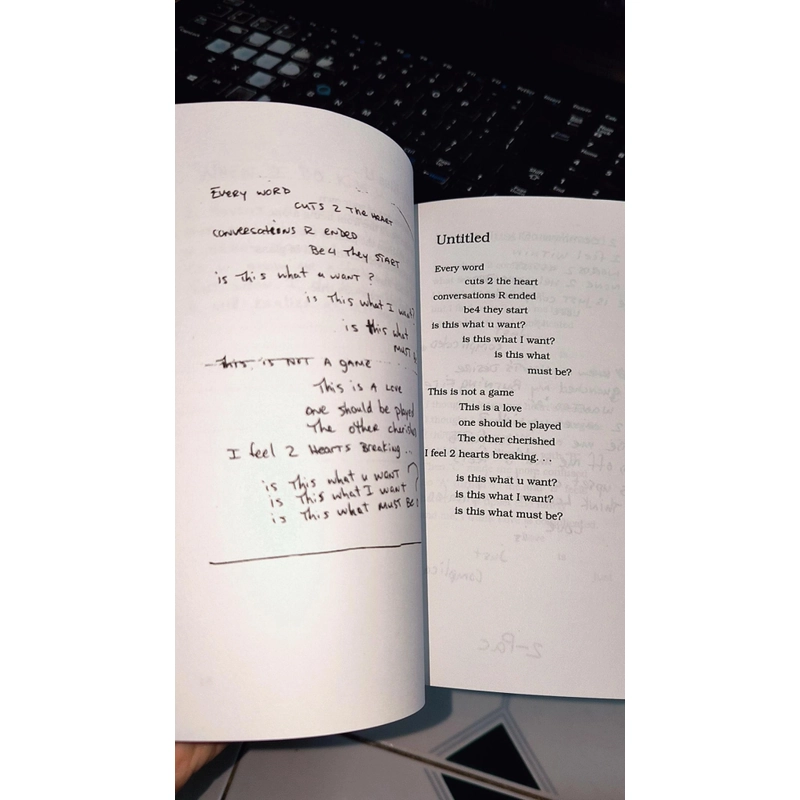 Every word
cuts 2 the heart
conversations R ended
Be4 they start
is this what u want?
is this what I want?
is this what
must
This is not A game
This is A Love
one should be played
The other cherished
I feel 2 Hearts Breaking..
is this what u want
is this what I want
is this what must Be
Untitled
Every word
cuts 2 the heart
conversations R ended
be4 they start
is this what u want?
is this what I want?
is this what
must be?
This is not a game
This is a love
one should be played
The other cherished
I feel 2 hearts breaking. . .
is this what u want?
is this what I want?
is this what must be?
2-Pac